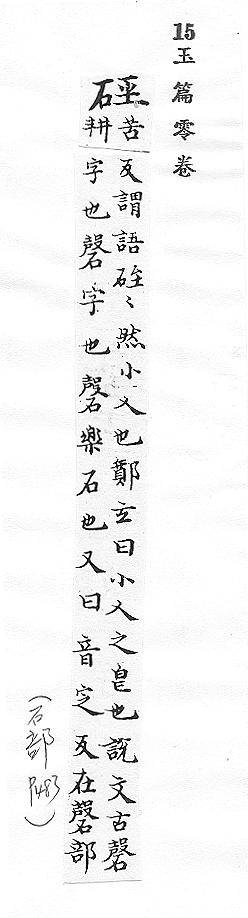 15玉篇零卷
硜
苦耕
反謂語硜〻然小人也鄭玄曰小人之皃也說文古磬
字也磬字也磬樂石也又曰音定反在磬部
(石部 P483)